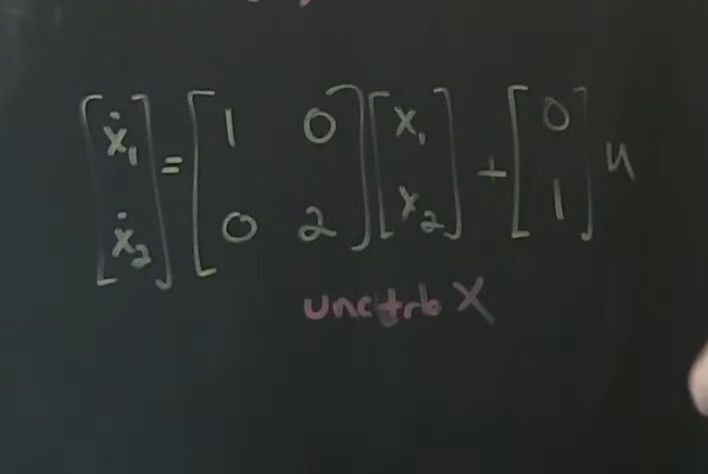 [ẋ₁ ẋ₂] = [1 0 0 2] [x₁ x₂] + [0 1] u
unctrb X